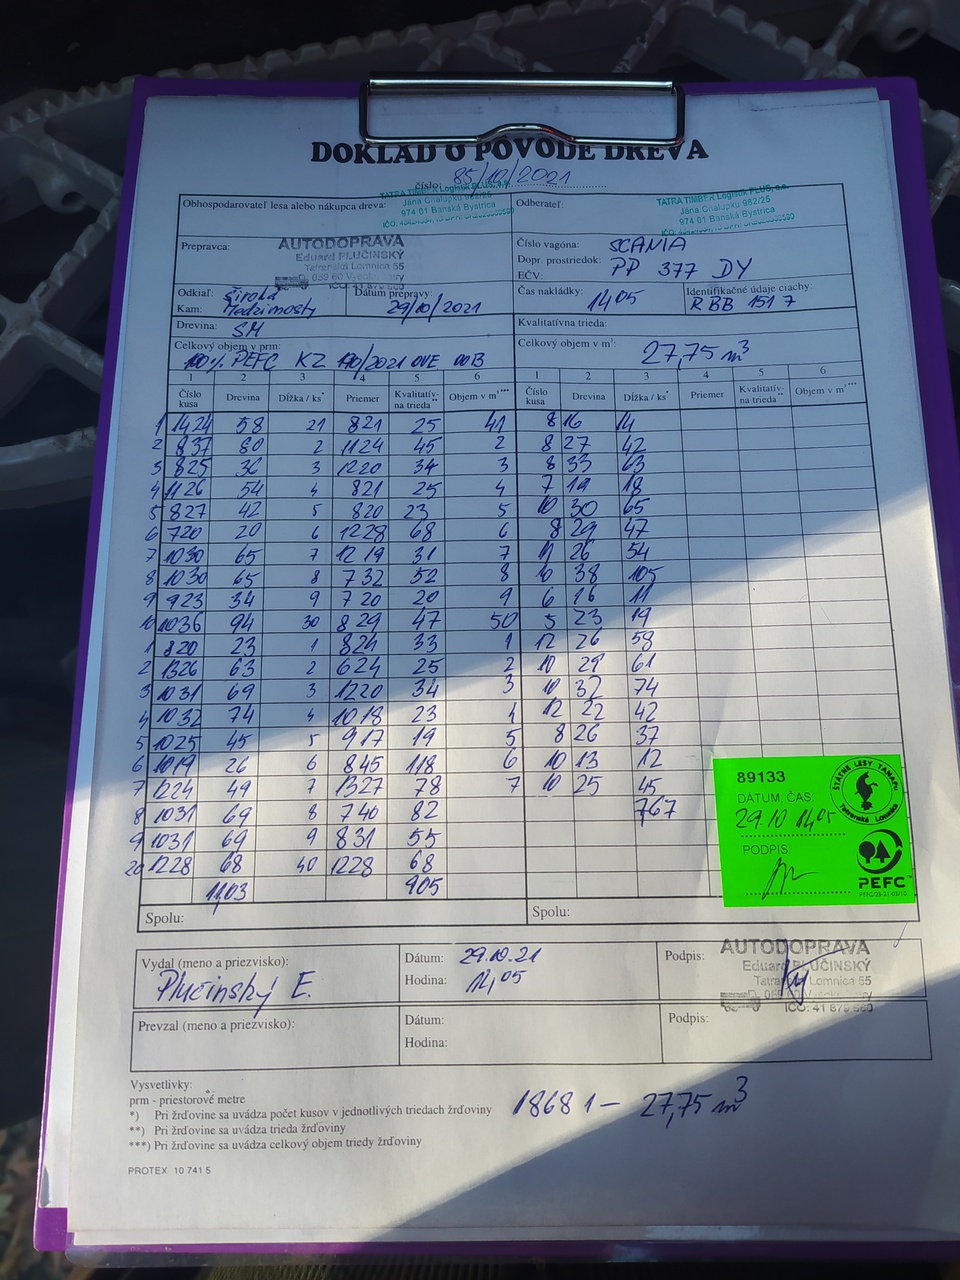 DOKLAD O PÔVODE DREVA
číslo: 85/10/2021
Obhospodarovateľ lesa alebo nákupca dreva:
TATRA TIMBER Logistik PLUS, a.s.
Jána Chalupku 982/25
974 01 Banská Bystrica
Odberateľ:
TATRA TIMBER Logistik PLUS, a.s.
Jána Chalupku 982/25
974 01 Banská Bystrica
Prepravca:
AUTODOPRAVA
Eduard PLUČINSKÝ
Tatranská Lomnica 55
Číslo vagóna: SCANIA
Dopr. prostriedok:
EČV: PP 377 DY
Odkiaľ: Široká
Kam: Medzimosty
Dátum prepravy:
29/10/2021
Čas nakládky:
1405
Identifikačné údaje ciachy:
RBB 151 7
Drevina: SM
Kvalitatívna trieda:
Celkový objem v prm:
100% PEFC KZ /2021 OVE 00B
Celkový objem v m³: 27,75 m³
1 2 3 4 5 6 1 2 3 4 5 6
Číslo kusa Drevina Dĺžka / ks* Priemer Kvalitatív- na trieda** Objem v m³*** Číslo kusa Drevina Dĺžka / ks* Priemer Kvalitatív- na trieda** Objem v m³***
1 1424 58 21 821 25 41 8 16 14
2 837 80 2 1124 45 2 8 27 42
3 825 36 3 1220 34 3 8 33 63
4 1126 54 4 821 25 4 7 19 18
5 827 42 5 820 23 5 10 30 65
6 720 20 6 1228 68 6 8 29 47
7 1030 65 7 1219 31 7 11 26 54
8 1030 65 8 732 52 8 10 38 105
9 923 34 9 720 20 9 6 16 11
10 1036 94 30 829 47 50 5 23 19
1 820 23 1 824 33 1 12 26 58
2 1326 63 2 624 25 2 10 29 61
3 1031 69 3 1220 34 3 10 32 74
4 1032 74 4 1018 23 4 12 22 42
5 1025 45 5 917 19 5 8 26 37
6 1019 26 6 845 118 6 10 13 12
7 1224 49 7 1327 78 7 10 25 45
8 1031 69 8 740 82 767
9 1031 69 9 831 55
20 1228 68 40 1228 68
1103 905
Spolu: Spolu:
89133
DÁTUM, ČAS:
29.10 14,05
PODPIS:
ŠTÁTNE LESY TANAPu
Tatranská Lomnica
PEFC
Vydal (meno a priezvisko):
Plučinský E.
Dátum: 29.10.21
Hodina: 14,05
Podpis:
AUTODOPRAVA
Eduard PLUČINSKÝ
Tatranská Lomnica 55
Prevzal (meno a priezvisko):
Dátum:
Hodina:
Podpis:
Vysvetlivky:
prm - priestorové metre
*) Pri žrďovine sa uvádza počet kusov v jednotlivých triedach žrďoviny
**) Pri žrďovine sa uvádza trieda žrďoviny
***) Pri žrďovine sa uvádza celkový objem triedy žrďoviny
1868 1 - 27,75 m³
PROTEX 10 741 5